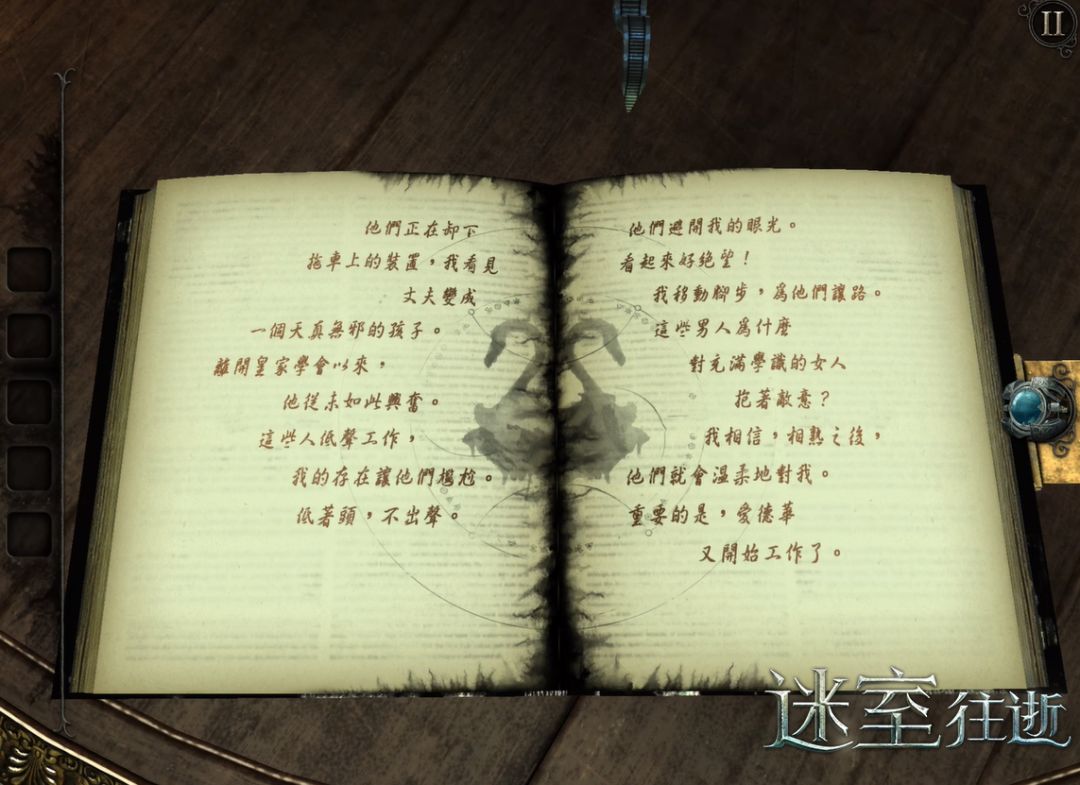 II
他們正在卸下
拖車上的裝置，我看見
丈夫變成
一個天真無邪的孩子。
離開皇家學會以來，
他從未如此興奮。
這些人低聲工作，
我的存在讓他們尷尬。
低著頭，不出聲。
他們避開我的眼光。
看起來好絕望！
我移動腳步，為他們讓路。
這些男人為什麼
對充滿學識的女人
抱著敵意？
我相信，相熟之後，
他們就會溫柔地對我。
重要的是，愛德華
又開始工作了。
迷室往逝